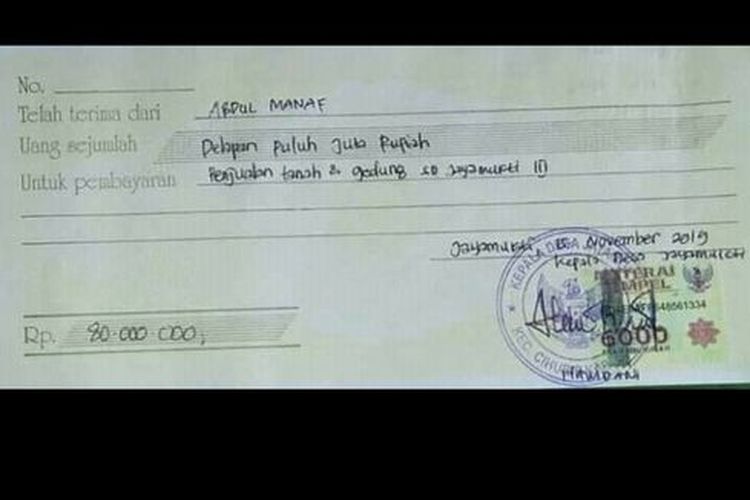 No.
Telah terima dari ABDUL MANAF
Uang sejumlah Delapan Puluh Juta Rupiah
Untuk pembayaran Penjualan tanah & gedung SD Jayamukti III
Jayamukti, November 2019
Kepala Desa Jayamukti
KEPALA DESA
METERAI
TEMPEL
6000
KEC. CIHU
Rp. 80.000 000,
HAMDANI